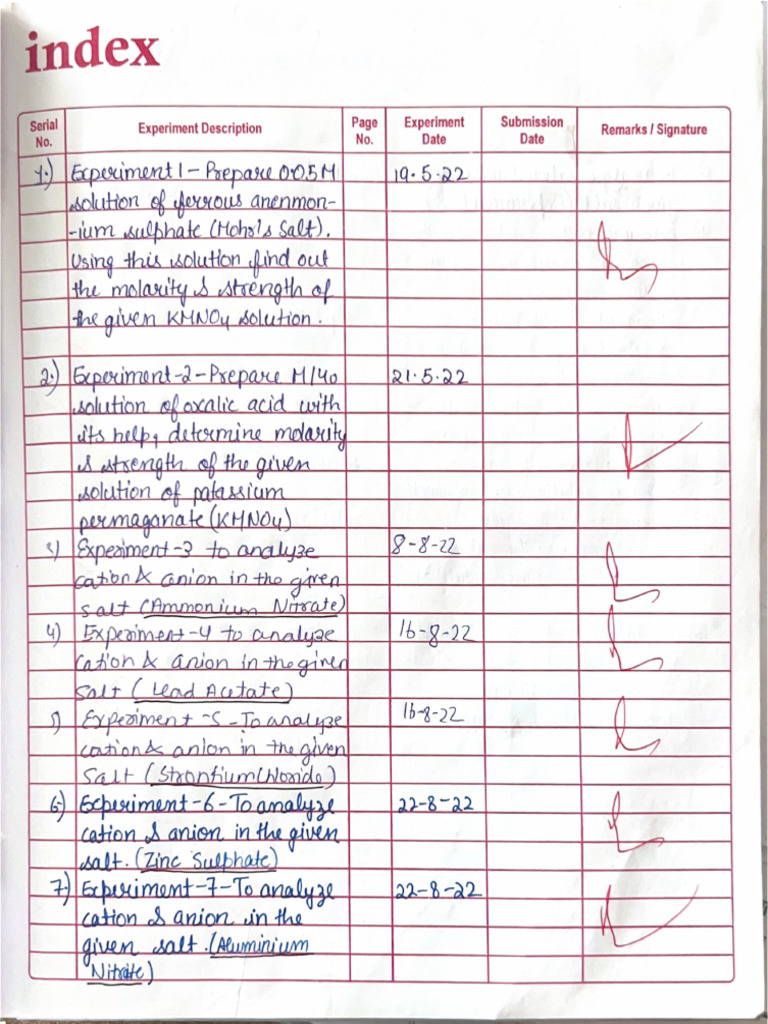 index
Serial No. Experiment Description Page No. Experiment Date Submission Date Remarks / Signature
1.) Experiment 1 - Prepare 0.05M 19.5.22
solution of ferrous anenmon-
-ium sulphate (Mohr's Salt).
Using this solution find out
the molarity & strength of
the given KMNO4 solution.
2.) Experiment-2-Prepare M/40 21.5.22
solution of oxalic acid with
its help, determine molarity
& strength of the given
solution of patassium
permaganate (KMNO4)
3) Experiment-3 to analyze 8-8-22
cation & anion in the given
salt (Ammonium Nitrate)
4) Experiment-4 to analyze 16-8-22
cation & anion in the given
Salt (Lead Acetate)
5) Experiment-5-To analyze 16-8-22
cation & anion in the given
Salt (Strontium Chloride)
6.) Experiment-6-To analyze 22-8-22
cation & anion in the given
salt. (Zinc Sulphate)
7.) Experiment-7-To analyze 22-8-22
cation & anion in the
given salt. (Aluminium
Nitrate)